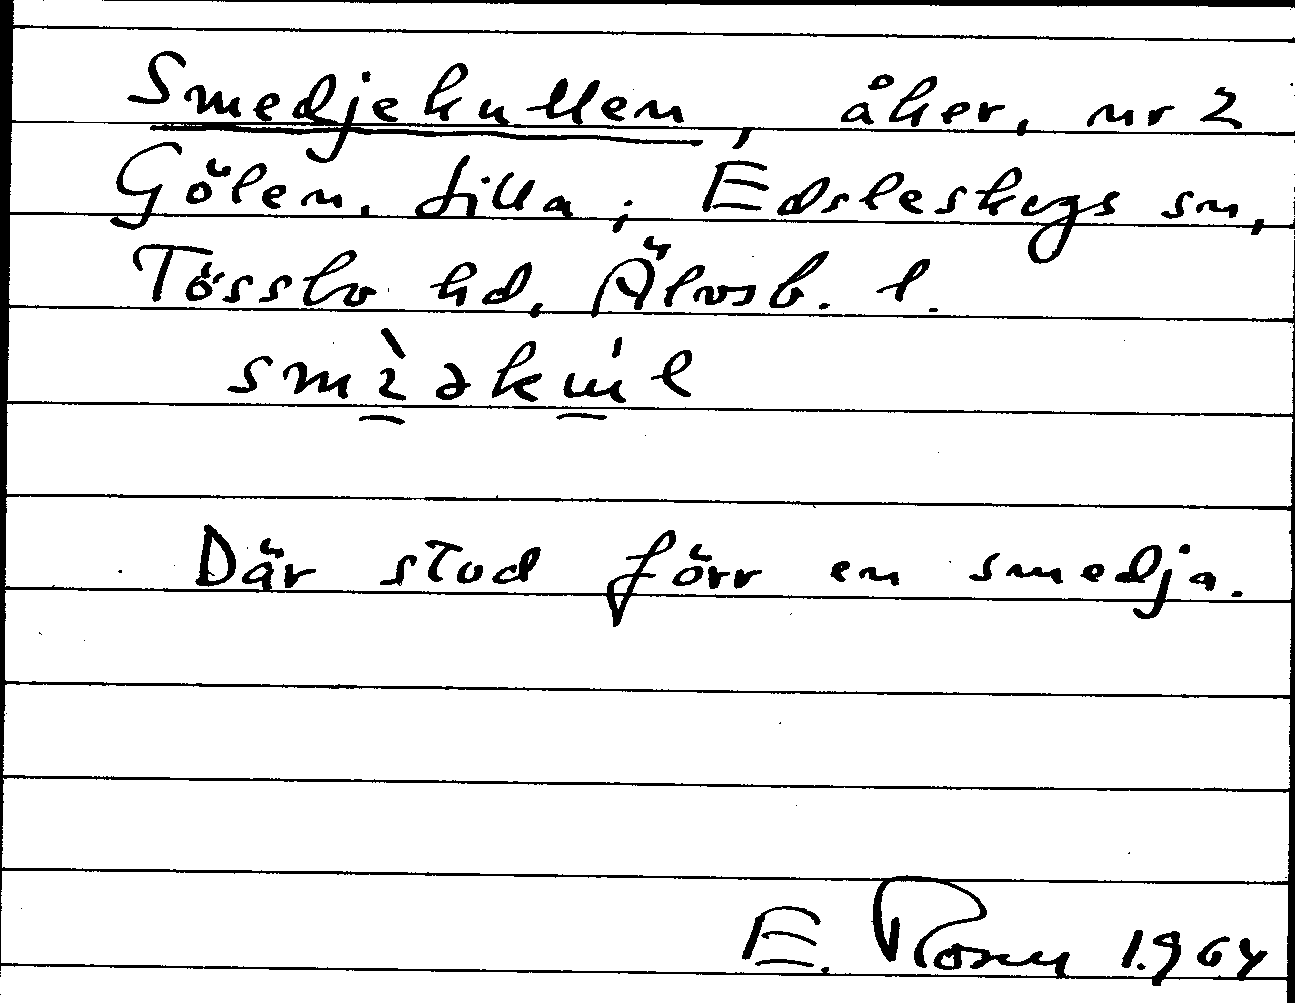 Smedjekullen, åker, nr 2
Gölen. Lilla; Edsleskogs sn,
Tössbo hd, Älvsb. l.
Där stod förr en smedja.
E. Rosen 1964